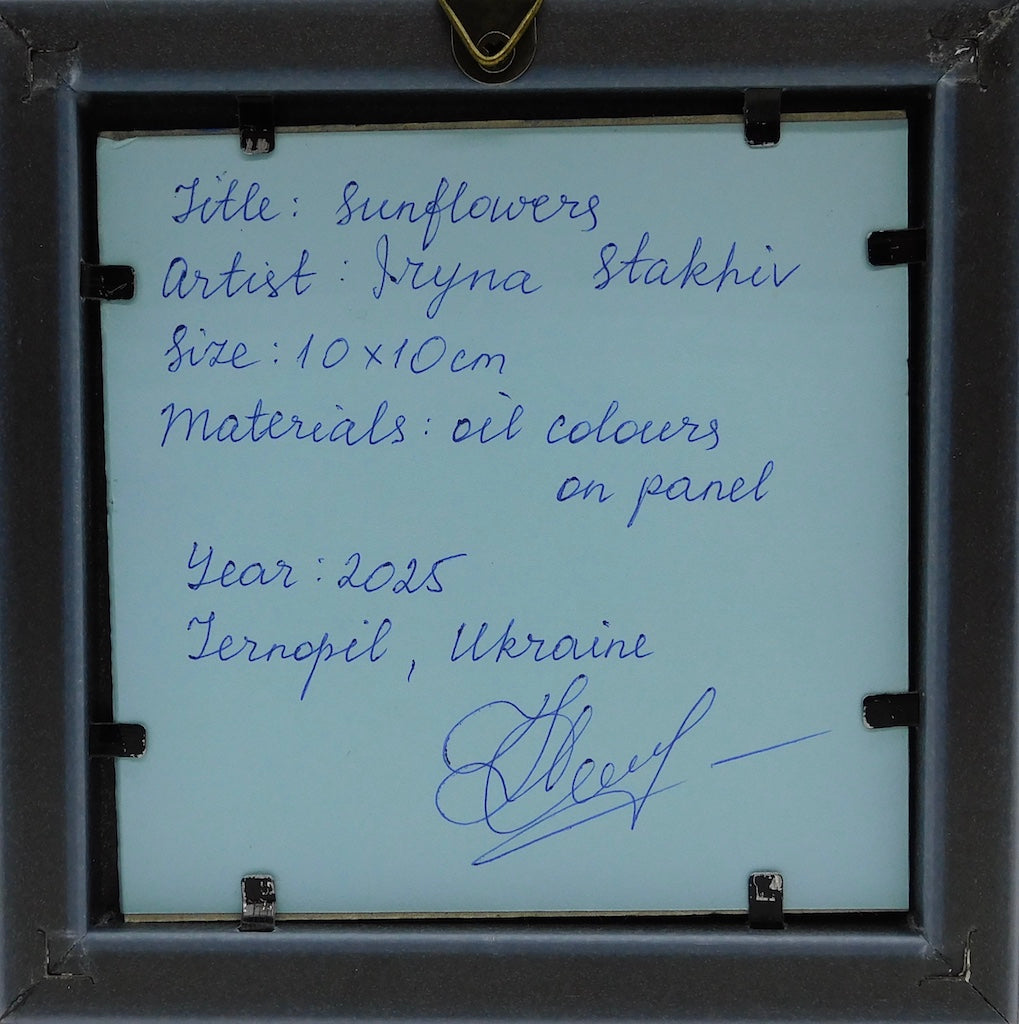 Title: Sunflowers
Artist: Iryna Stakhiv
Size: 10x10cm
Materials: oil colours
on panel
Year: 2025
Ternopil, Ukraine